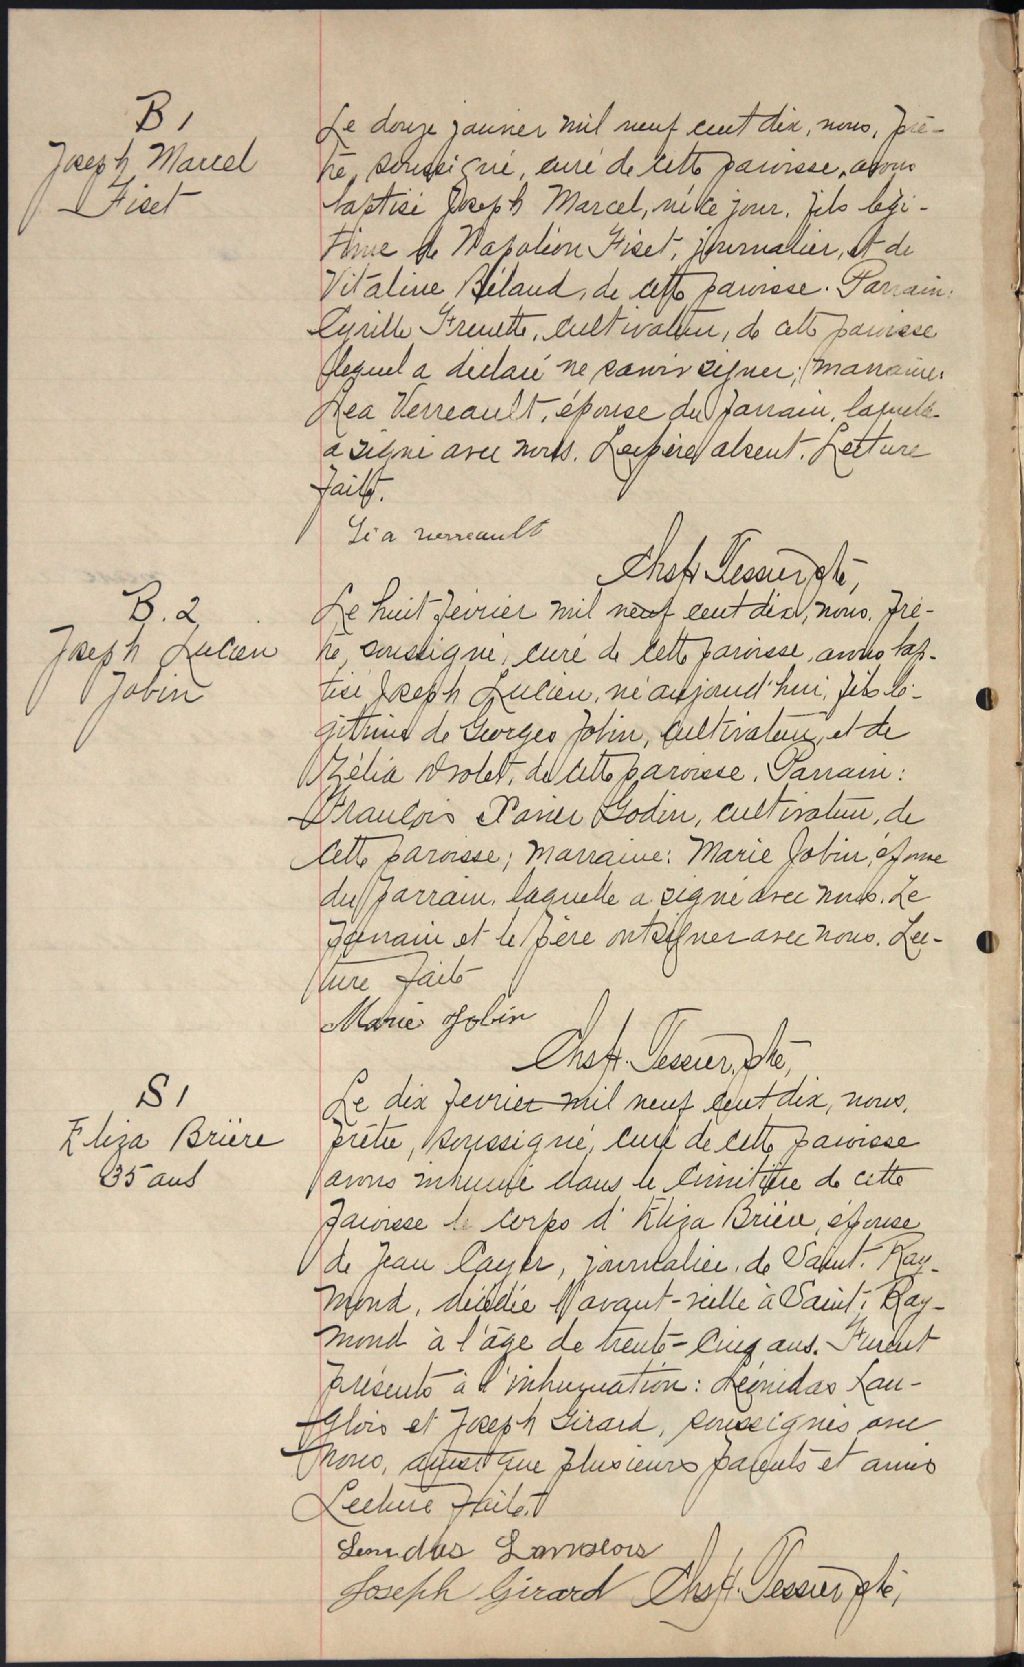 B 1
Joseph Marcel
Fiset
Le douze janvier mil neuf cent dix, nous, prê-
tre, soussigné, curé de cette paroisse, avons
baptisé Joseph Marcel, né ce jour, fils légi-
time de Napoléon Fiset, journalier, et de
Vitaline Béland, de cette paroisse. Parrain:
Cyrille Frenette, cultivateur, de cette paroisse
lequel a déclaré ne savoir signer; marraine:
Léa Verreault, épouse du parrain, laquelle
a signé avec nous. Le père absent. Lecture
faite.
Léa verreault
Chs H. Tessier ptre,
B. 2
Joseph Lucien
Jobin
Le huit février mil neuf cent dix, nous, prê-
tre, soussigné, curé de cette paroisse, avons bap-
tisé Joseph Lucien, né aujourd'hui, fils lé-
gitime de Georges Jobin, cultivateur, et de
Zélia Drolet, de cette paroisse. Parrain:
François Xavier Godin, cultivateur, de
cette paroisse; marraine: Marie Jobin, épouse
du parrain, laquelle a signé avec nous. Le
parrain et le père ont signer avec nous. Lec-
ture faite
Marie Jobin
Chs H. Tessier, ptre,
S 1
Eliza Brière
35 ans
Le dix fevrier mil neuf cent dix, nous,
prêtre, soussigné, curé de cette paroisse
avons inhumé dans le cimitière de cette
paroisse le corps d'Eliza Brière, épouse
de Jean Cayer, journalier, de Saint-Ray-
mond, décédée l'avant-veille à Saint-Ray-
mond à l'âge de trente-cinq ans. Furent
présents à l'inhumation: Léonidas Lan-
glois et Joseph Girard, soussignés avec
nous, ainsi que plusieurs parents et amis
Lecture faite.
Joseph Girard Chs H. Tessier ptre,